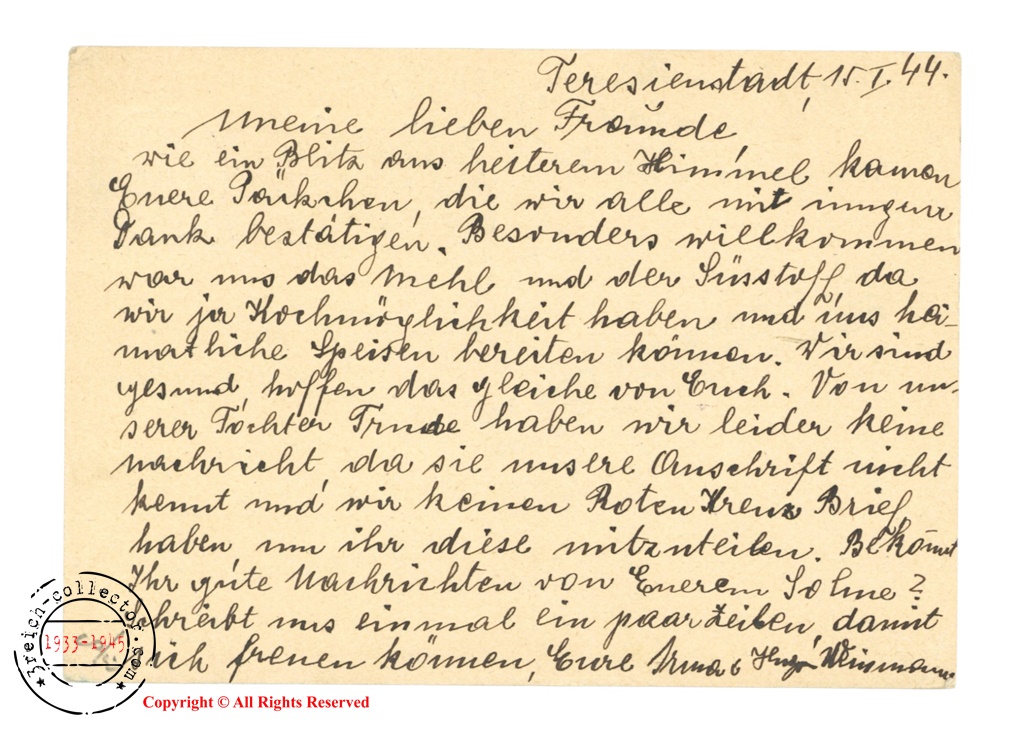 Teresienstadt, 15.I.44.
Meine lieben Fraunde,
wie ein Blitz aus heiterem Himmel kamen
Euere Päckchen, die wir alle mit innigem
Dank bestätigen. Besonders willkommen
war uns das Mehl und der Süsstoff, da
wir ja Kochmöglichkeit haben und uns hei-
matliche Speisen bereiten können. Wir sind
gesund, hoffen das gleiche von Euch. Von un-
serer Tochter Trude haben wir leider keine
Nachricht, da sie unsere Anschrift nicht
kennt und wir keinen Roten Kreuz Brief
haben, um ihr diese mitzuteilen. Bekömmt
Ihr gute Nachrichten von Euerem Sohne?
Schreibt uns einmal ein paar Zeilen, damit
ich freuen können, Eure Irma & Hugo
3reich-collector.com
1933-1945
Copyright © All Rights Reserved